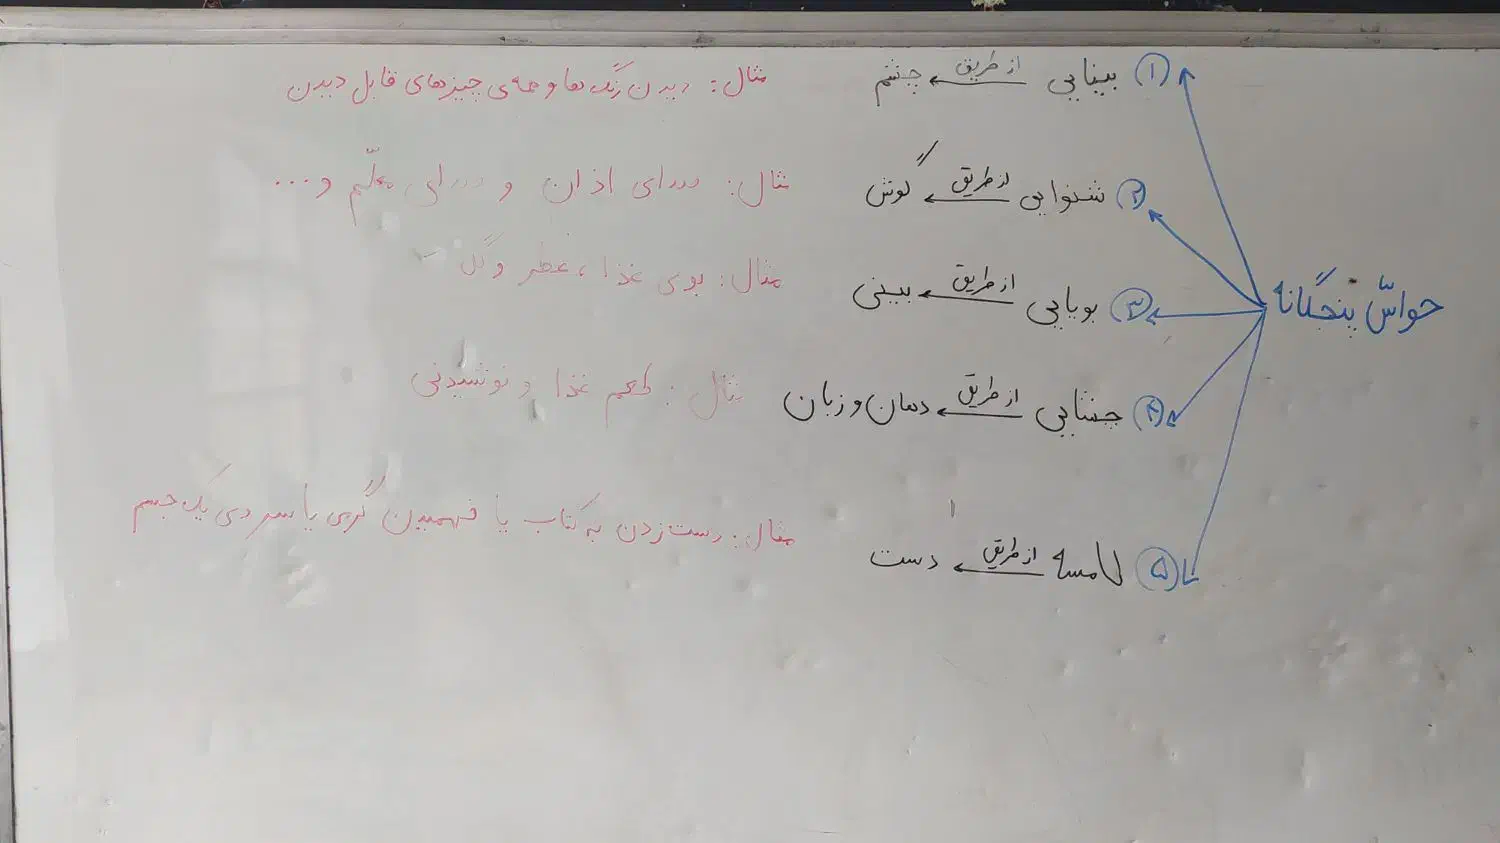 حواسّ پنجگانه
۱ بینایی از طریق چشم مثال: دیدن رنگ ها و همه‌ی چیزهای قابل دیدن
۲ شنوایی از طریق گوش مثال: صدای اذان و صدای معلّم و...
۳ بویایی از طریق بینی مثال: بوی غذا، عطر و گل
۴ چشایی از طریق دهان و زبان مثال: طعم غذا و نوشیدنی
۵ لامسه از طریق دست مثال: دست زدن به کتاب یا فهمیدن گرمی یا سردی یک جسم